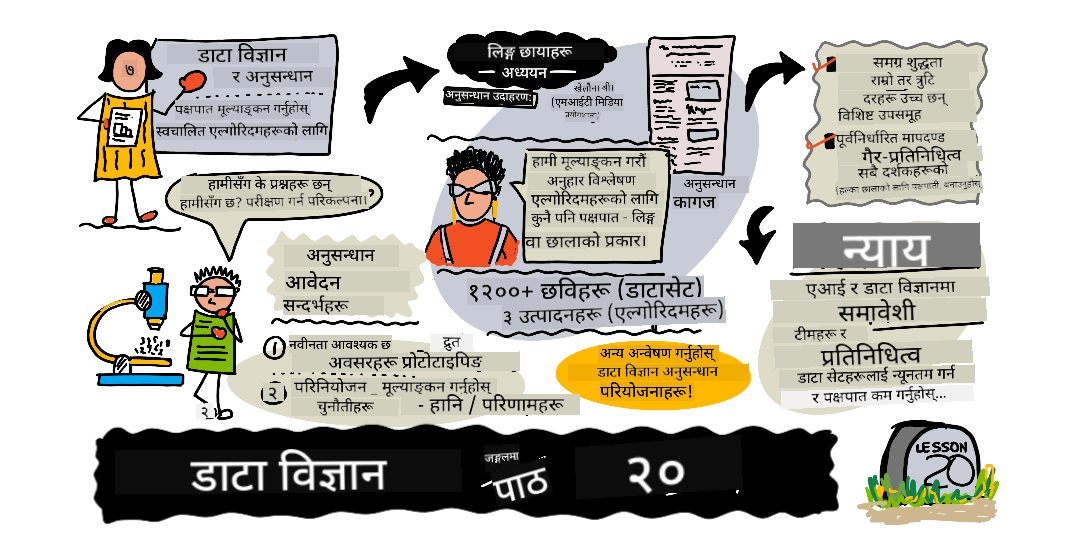 डाटा विज्ञान
र अनुसन्धान
७
पक्षपात मूल्याङ्कन गर्नुहोस्
स्वचालित एल्गोरिदमहरूको लागि
हामीसँग के प्रश्नहरू छन्
हामीसँग छ? परीक्षण गर्न परिकल्पना।
?
अनुसन्धान
आवेदन
सन्दर्भहरू
१
नवीनता आवश्यक छ
द्रुत
अवसरहरू प्रोटोटाइपिङ
२
परिनियोजन _ मूल्याङ्कन गर्नुहोस्
चुनौतीहरू
- हानि / परिणामहरू
लिङ्ग छायाहरू
अध्ययन
अनुसन्धान उदाहरण:
(एमआईटी मिडिया
प्रयोगशाला)
अनुसन्धान
कागज
हामी मूल्याङ्कन गरौं
अनुहार विश्लेषण
एल्गोरिदमहरूको लागि
कुनै पनि पक्षपात - लिङ्ग
वा छालाको प्रकार।
१२००+ छविहरू (डाटासेट)
३ उत्पादनहरू (एल्गोरिदमहरू)
अन्य अन्वेषण गर्नुहोस्
डाटा विज्ञान अनुसन्धान
परियोजनाहरू!
समग्र शुद्धता
राम्रो तर त्रुटि
दरहरू उच्च छन्
विशिष्ट उपसमूह
पूर्वनिर्धारित मापदण्ड
गैर-प्रतिनिधित्व
सबै दर्शकहरूको
(हल्का छालाको लागि पक्षपाती, बनाउनुहोस्
न्याय
एआई र डाटा विज्ञानमा
समावेशी
टीमहरू र
प्रतिनिधित्व
डाटा सेटहरूलाई न्यूनतम गर्न
र पक्षपात कम गर्नुहोस्...
डाटा विज्ञान
जङ्गलमा
पाठ
२०
LESSON
20